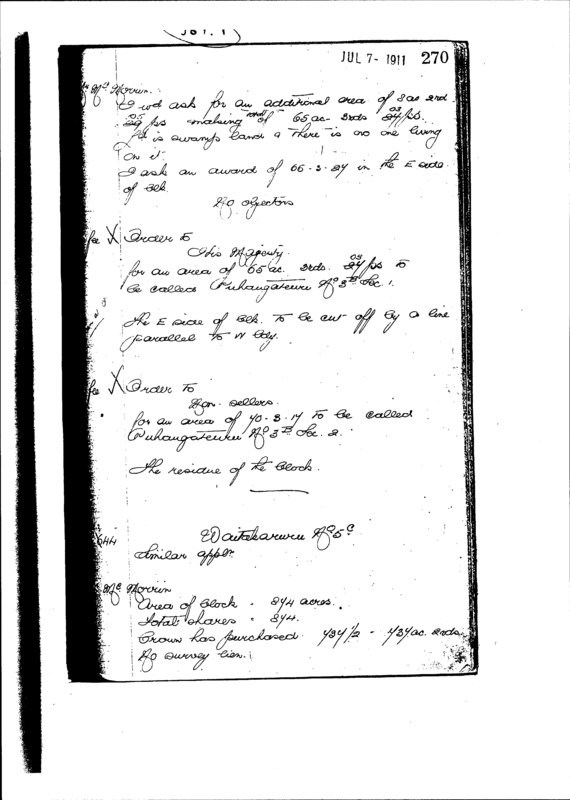 JUL 7- 1911 270
Mr McMorrin.
I wd ask for an additional area of 3 ac 2rd
05 29 ps making total of 65 ac 3rds 03 24 ps.
It is swamp land & there is no one living
on it.
I ask an award of 65-3-24 in the E side
of Blk
No objectors
fee X Order to
His Majesty.
for an area of 65 ac. 3rds. 03 24 ps to
be called No 3B Sec. 1.
The E side of Blk. to be cut off by a line
parallel to W bdy.
fee X Order to
Non. sellers.
for an area of 40-3-17 to be called
No 3B Sec. 2.
The residue of the block.
644
Waitakaruru No 5C
Similar appln
Mr McMorrin
Area of block - 844 acres.
Total shares - 844.
Crown has purchased 434 1/2 - 434ac. 2rds.
No survey lien.